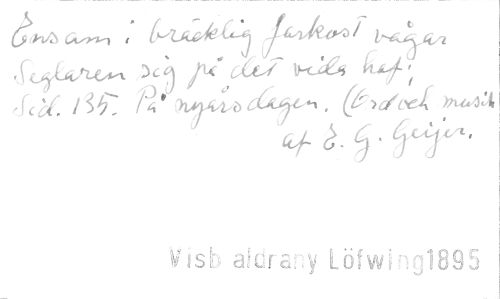 Ensam i bräcklig farkost vågar
Seglaren sig på det vida haf;
Sid. 135. På nyårsdagen. (Ord och musik
af E. G. Geijer.
Visb aldrany Löfwing1895